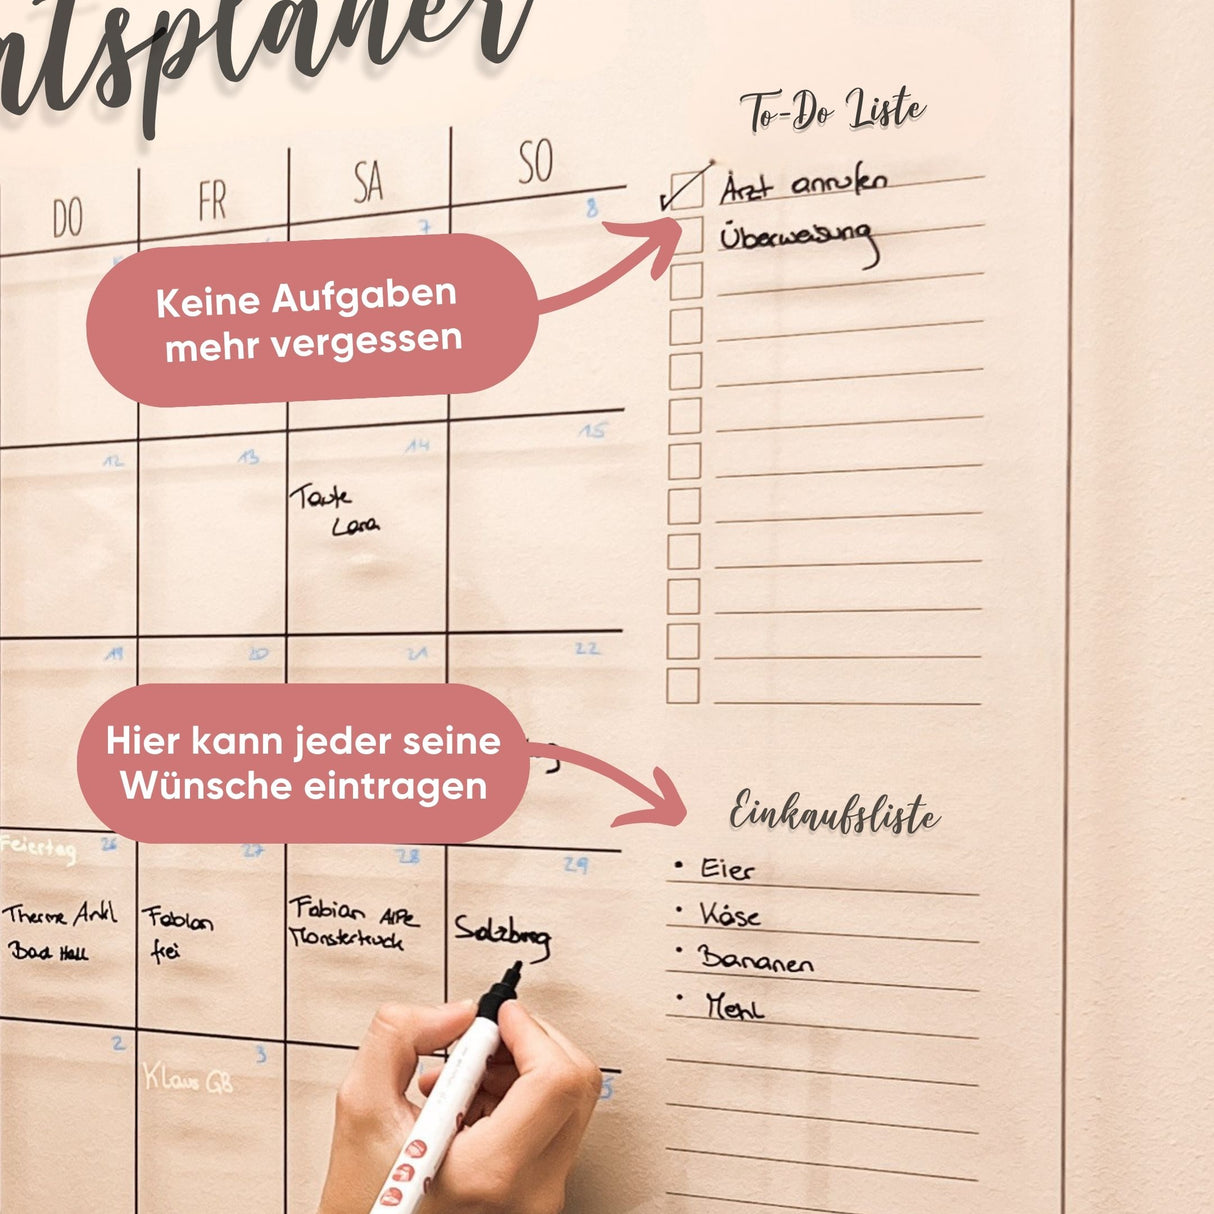 To-Do Liste
DO FR SA SO
7 8
Arzt anrufen
Überweisung
Keine Aufgaben
mehr vergessen
12 13 14 15
Tante
Lara
19 20 21 22
Hier kann jeder seine
Wünsche eintragen
Einkaufsliste
Feiertag 26 27 28 29
Therme
Bad Hall
Fabian
frei
Fabian
Monstertruck
Salzburg
• Eier
• Käse
• Bananen
• Mehl
2 3 5
Klaus GB